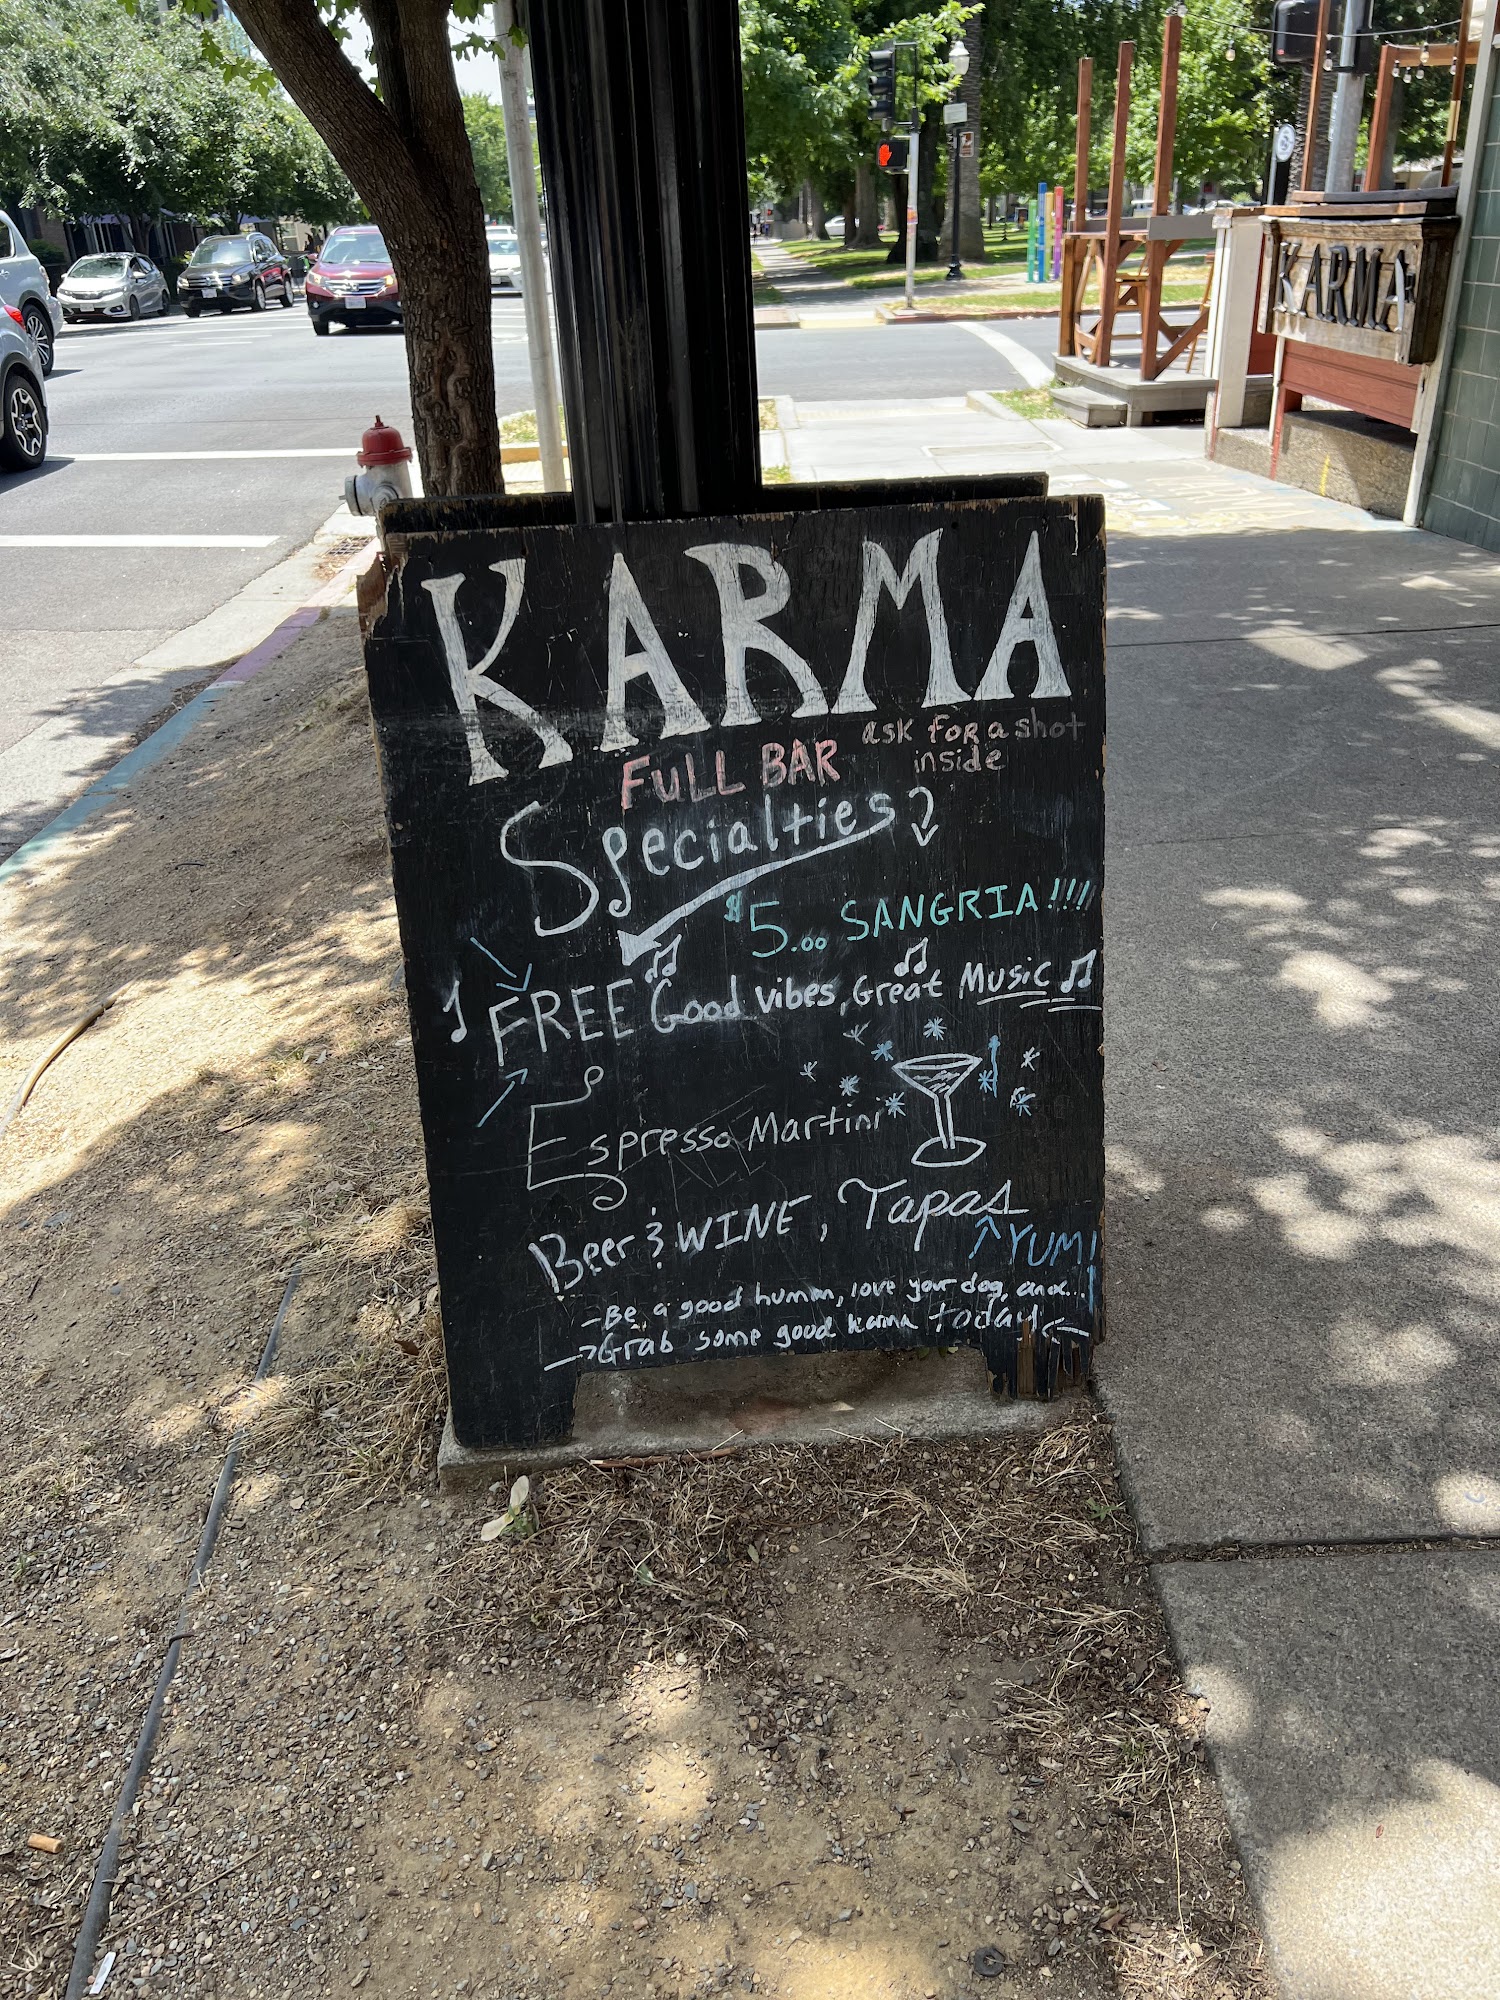 KARMA
KARMA
FULL BAR
ask for a shot
inside
Specialties
$5.00 SANGRIA!!!!
FREE Good vibes, Great Music
Espresso Martini
Beer & WINE, Tapas
YUM!
- Be a good human, love your dog, and...
→ Grab some good karma today! ←